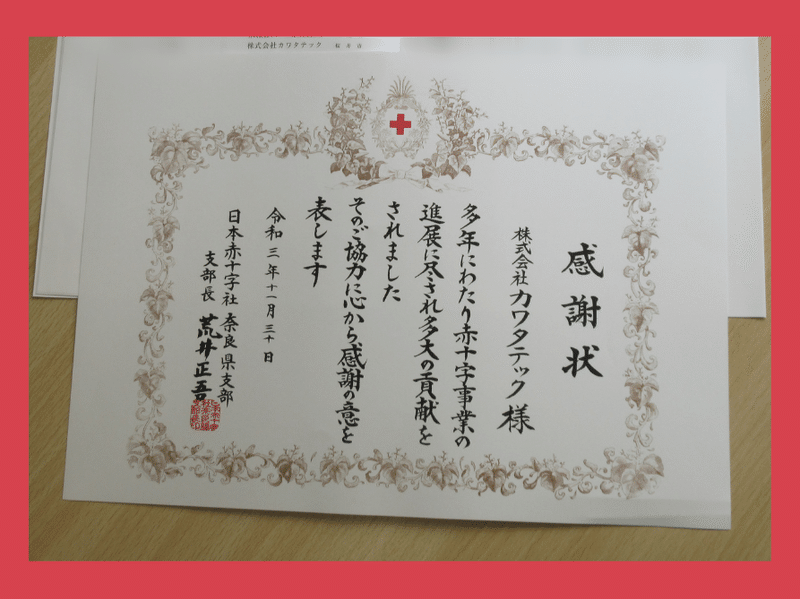 株式会社カワタテック
感謝状
株式会社カワタテック様
多年にわたり赤十字事業の
進展に尽され多大の貢献を
されました
そのご協力に心から感謝の意を
表します
令和三年十一月三十日
日本赤十字社奈良県支部
支部長 荒井正吾